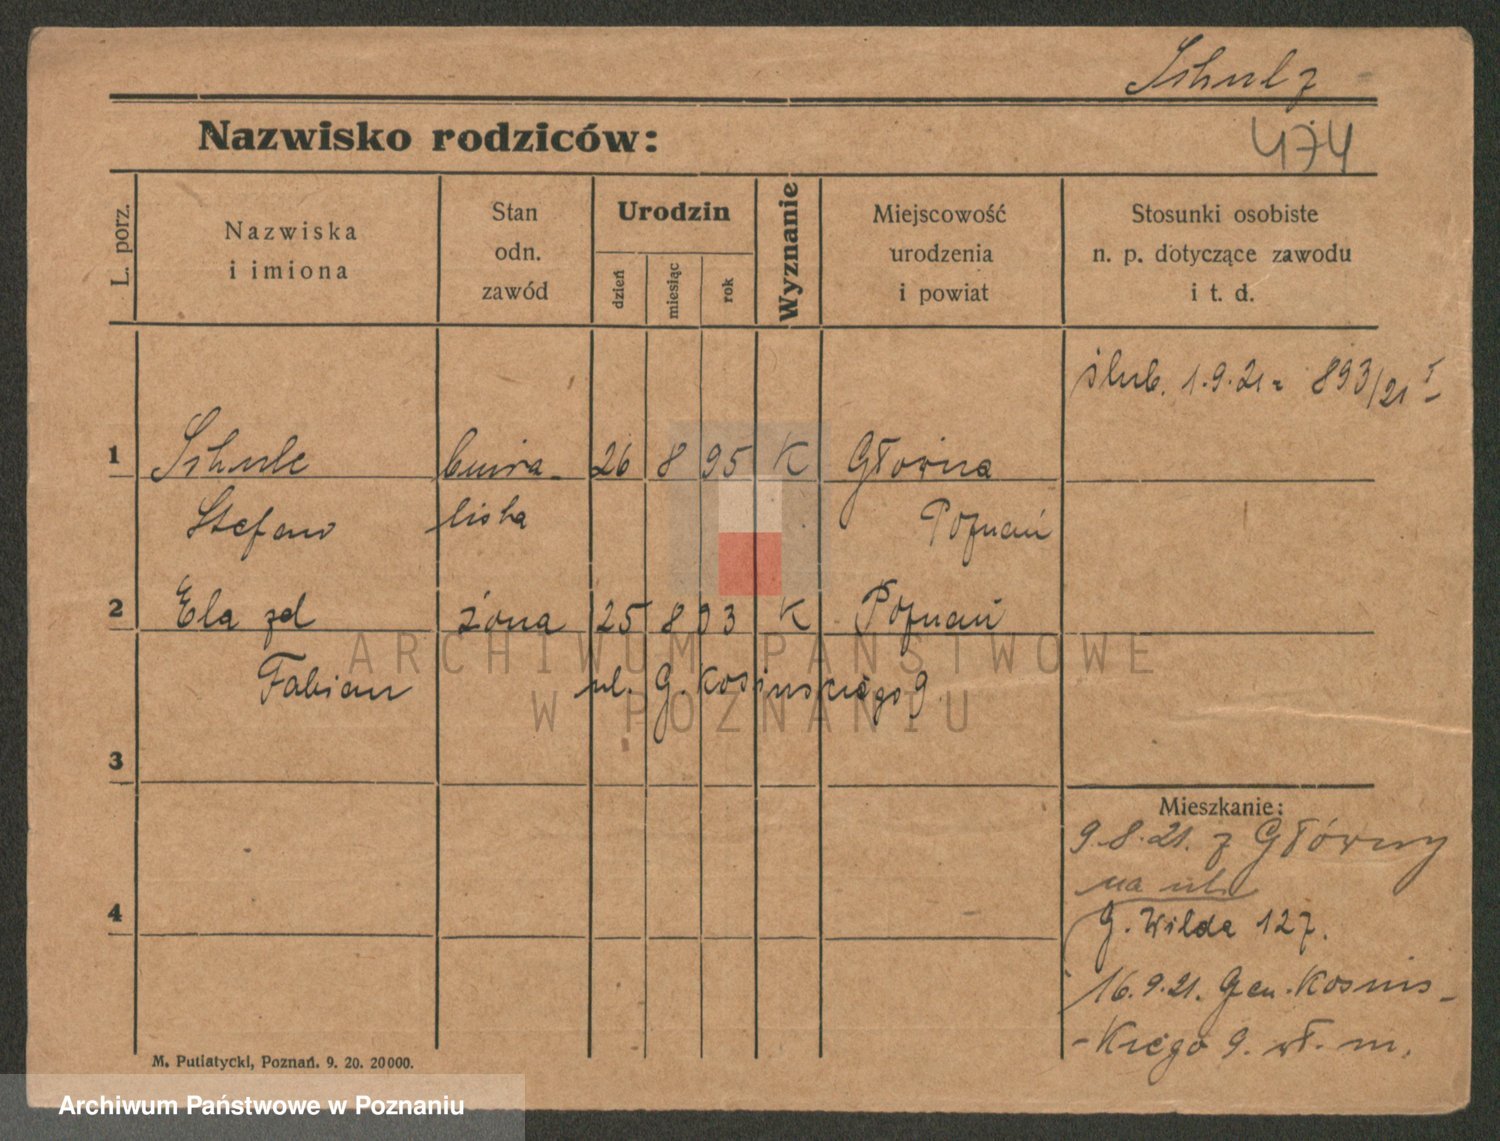 Schulz
Nazwisko rodziców:
474
L. porz.
Nazwiska
i imiona
Stan
odn.
zawód
Urodzin
dzień
miesiąc
rok
Wyznanie
Miejscowość
urodzenia
i powiat
Stosunki osobiste
n. p. dotyczące zawodu
i t. d.
ślub. 1.9.21 893/21 I
1 Schulz 26 8 95 K Główna
Stefan Poznań
2 Ela zd żona 25 8 03 K Poznań
Fabian ul. G. Kosinskiego 9
3
Mieszkanie:
9.8.21. z Główny
na ul.
4
G. Wilda 127.
16.9.21. Gen. Kosins-
-kiego 9. wł. m.
M. Putiatycki, Poznań. 9. 20. 20000.
ARCHIWUM PAŃSTWOWE
W POZNANIU
Archiwum Państwowe w Poznaniu